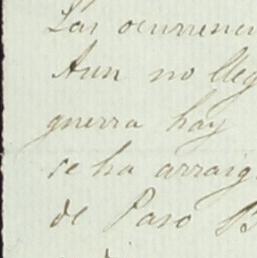 Las ocurrenci
Aun no lleg
guerra hay
se ha arraig
de Paso B